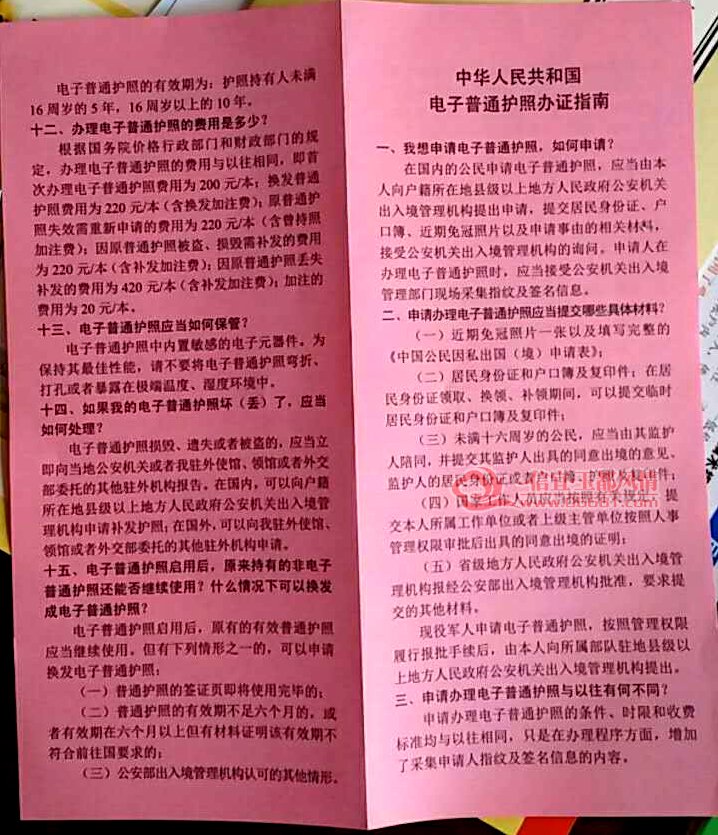 电子普通护照的有效期为：护照持有人未满
16 周岁的 5 年，16 周岁以上的 10 年。
十二、办理电子普通护照的费用是多少？
根据国务院价格行政部门和财政部门的规
定，办理电子普通护照的费用与以往相同，即首
次办理电子普通护照费用为 200 元/本；换发普通
护照费用为 220 元/本（含换发加注费）；原普通护
照失效需重新申请的费用为 220 元/本（含曾持照
加注费）；因原普通护照被盗、损毁需补发的费用
为 220 元/本（含补发加注费）；因原普通护照丢失
补发的费用为 420 元/本（含补发加注费）；加注的
费用为 20 元/本。
十三、电子普通护照应当如何保管？
电子普通护照中内置敏感的电子元器件。为
保持其最佳性能，请不要将电子普通护照弯折、
打孔或者暴露在极端温度、湿度环境中。
十四、如果我的电子普通护照坏（丢）了，应当
如何处理？
电子普通护照损毁、遗失或者被盗的，应当立
即向当地公安机关或者我驻外使馆、领馆或者外交
部委托的其他驻外机构报告。在国内，可以向户籍
所在地县级以上地方人民政府公安机关出入境管
理机构申请补发护照；在国外，可以向我驻外使馆、
领馆或者外交部委托的其他驻外机构申请。
十五、电子普通护照启用后，原来持有的非电子
普通护照还能否继续使用？什么情况下可以换发
成电子普通护照？
电子普通护照启用后，原有的有效普通护照
应当继续使用。但有下列情形之一的，可以申请
换发电子普通护照：
（一）普通护照的签证页即将使用完毕的；
（二）普通护照的有效期不足六个月的，或
者有效期在六个月以上但有材料证明该有效期不
符合前往国要求的；
（三）公安部出入境管理机构认可的其他情形。
中华人民共和国
电子普通护照办证指南
一、我想申请电子普通护照，如何申请？
在国内的公民申请电子普通护照，应当由本
人向户籍所在地县级以上地方人民政府公安机关
出入境管理机构提出申请，提交居民身份证、户
口簿、近期免冠照片以及申请事由的相关材料，
接受公安机关出入境管理机构的询问。申请人在
办理电子普通护照时，应当接受公安机关出入境
管理部门现场采集指纹及签名信息。
二、申请办理电子普通护照应当提交哪些具体材料？
（一）近期免冠照片一张以及填写完整的
《中国公民因私出国（境）申请表》；
（二）居民身份证和户口簿及复印件；在居
民身份证领取、换领、补领期间，可以提交临时
居民身份证和户口簿及复印件；
（三）未满十六周岁的公民，应当由其监护
人陪同，并提交其监护人出具的同意出境的意见、
监护人的居民身份证或者户口簿、护照及复印件；
（四）国家工作人员应当按照有关规定，提
交本人所属工作单位或者上级主管单位按照人事
管理权限审批后出具的同意出境的证明；
（五）省级地方人民政府公安机关出入境管
理机构报经公安部出入境管理机构批准，要求提
交的其他材料。
现役军人申请电子普通护照，按照管理权限
履行报批手续后，由本人向所属部队驻地县级以
上地方人民政府公安机关出入境管理机构提出。
三、申请办理电子普通护照与以往有何不同？
申请办理电子普通护照的条件、时限和收费
标准均与以往相同，只是在办理程序方面，增加
了采集申请人指纹及签名信息的内容。